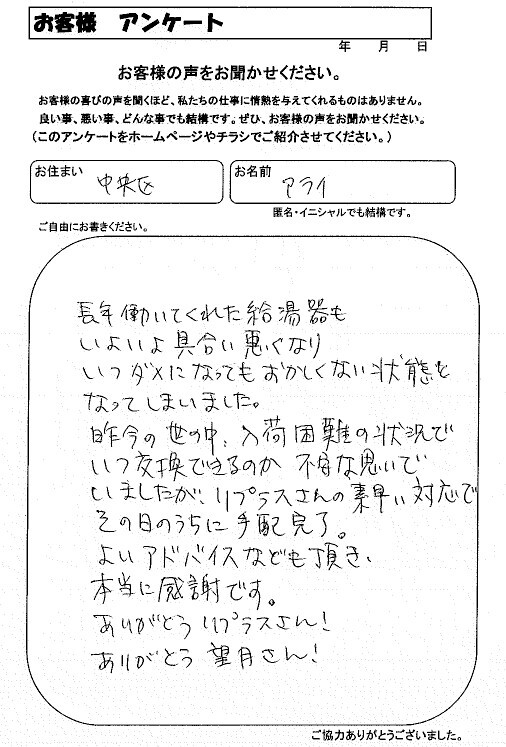 お客様　アンケート
年　月　日
お客様の声をお聞かせください。
お客様の喜びの声を聞くほど、私たちの仕事に情熱を与えてくれるものはありません。
良い事、悪い事、どんな事でも結構です。ぜひ、お客様の声をお聞かせください。
（このアンケートをホームページやチラシでご紹介させてください。）
お住まい　中央区
お名前　アライ
匿名・イニシャルでも結構です。
ご自由にお書きください。
長年働いてくれた給湯器も
いよいよ具合い悪くなり
いつダメになってもおかしくない状態と
なってしまいました。
昨今の世の中、入荷困難の状況で
いつ交換できるのか不安な思いで
いましたが、リプラスさんの素早い対応で
その日のうちに手配完了。
よいアドバイスなども頂き、
本当に感謝です。
ありがとうリプラスさん！
ありがとう望月さん！
ご協力ありがとうございました。